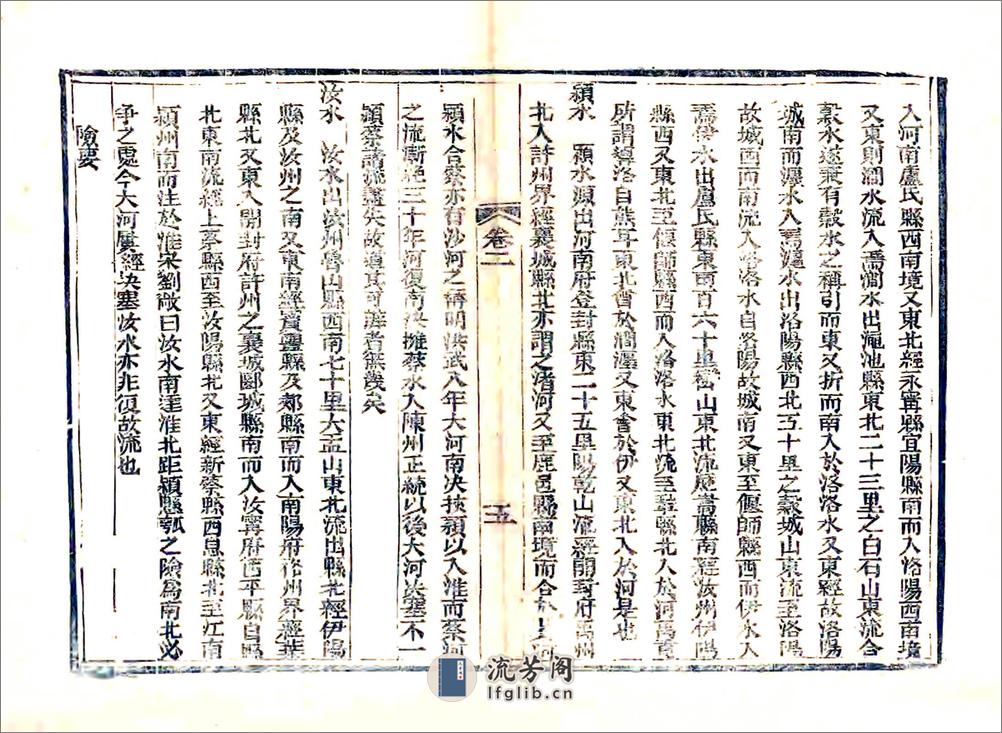 入河南盧氏縣西南境又東北經永寧縣宜陽縣南而入洛陽西南境
又東則澗水流入焉澗水出澠池縣東北二十三里之白石山東流合
穀水遂兼有穀水之稱引而東又折而南入於洛洛水又東經故洛陽
城南而瀍水入焉瀍水出洛陽縣西北五十里之穀城山東流至洛陽
故城西而南流入洛洛水自洛陽故城南又東至偃師縣西而伊水入
焉伊水出盧氏縣東南百六十里巒山東北流歷嵩縣南經汝州伊陽
縣西又東北至偃師縣西而入洛洛水東北流至鞏縣北入於河禹貢
所謂導洛自熊耳東北會於澗瀍又東會於伊又東北入於河是也
潁水 潁水源出河南府登封縣東二十五里陽乾山流經開封府禹州
北入許州界經襄城縣北亦謂之渚河又至鹿邑縣南境而合於
卷二
五
潁水合蔡亦有沙河之稱明洪武八年大河南決挾潁以入淮而蔡河
之流漸絕三十年河復南決擁蔡水入陳州正統以後大河決塞不一
潁蔡諸流盡失故道其可辨者無幾矣
汝水 汝水出汝州魯山縣西南七十里大盂山東北流出縣北經伊陽
縣及汝州之南又東南經寶豐縣及郟縣南而入南陽府裕州界經葉
縣北又東入開封府許州之襄城郾城縣南而入汝寧府西平縣自縣
北東南流經上蔡縣西至汝陽縣北又東經新蔡縣西息縣北至江南
潁州南而注於淮宋劉敞曰汝水南達淮北距潁懸瓠之險為南北必
爭之處今大河屢經決塞汝水亦非復故流也
險要
流芳阁
lfglib.cn